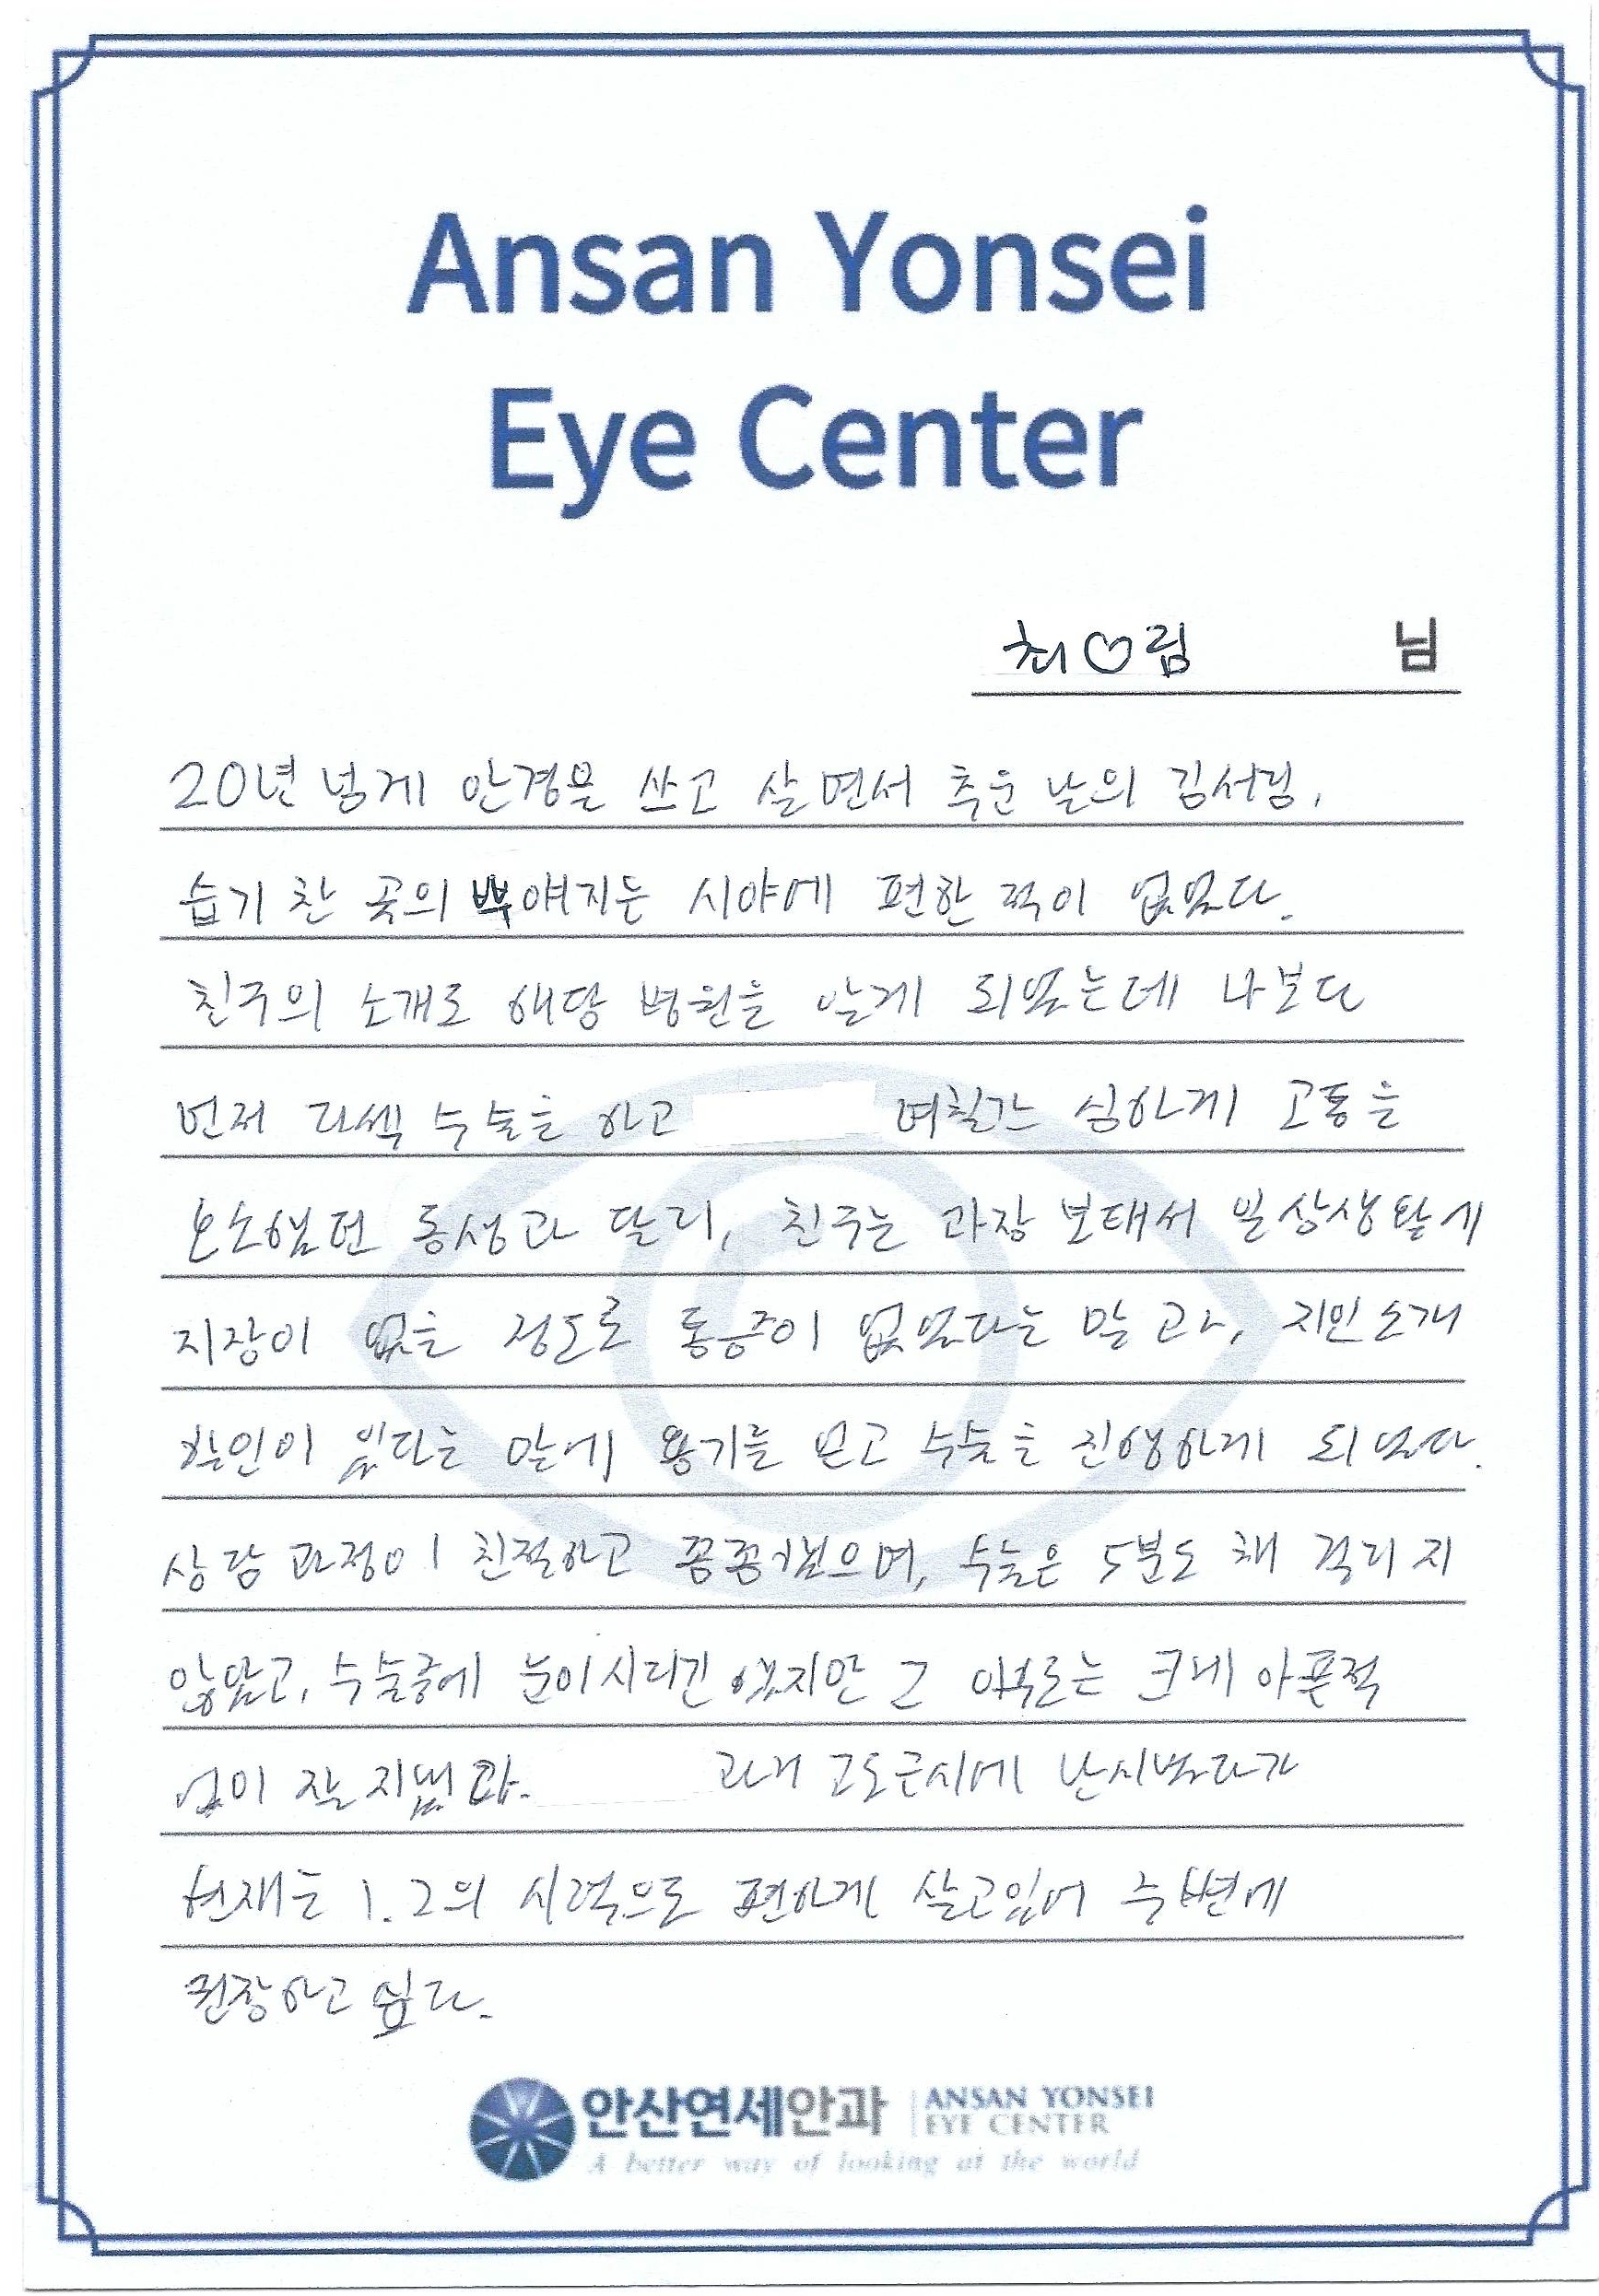 Ansan Yonsei
Eye Center
최♡림 님
20년 넘게 안경을 쓰고 살면서 추운 날의 김서림,
습기 찬 곳의 뿌얘지는 시야에 편한 적이 없었다.
친구의 소개로 해당 병원을 알게 되었는데 나보다
먼저 라섹 수술을 하고 며칠간 심하게 고통을
호소했던 동생과 달리, 친구는 과장 보태서 일상생활에
지장이 없을 정도로 통증이 없었다는 말과, 지인소개
할인이 있다는 말에 용기를 얻고 수술을 진행하게 되었다.
상담 과정이 친절하고 꼼꼼했으며, 수술은 5분도 채 걸리지
않았고, 수술중에 눈이 시리긴 했지만 그 이후로는 크게 아픈적
없이 잘 지냈다. 과거 고도근시에 난시였다가
현재는 1.2의 시력으로 편하게 살고있어 주변에
권장하고 싶다.
안산연세안과 ANSAN YONSEI
EYE CENTER
A better way of looking at the world